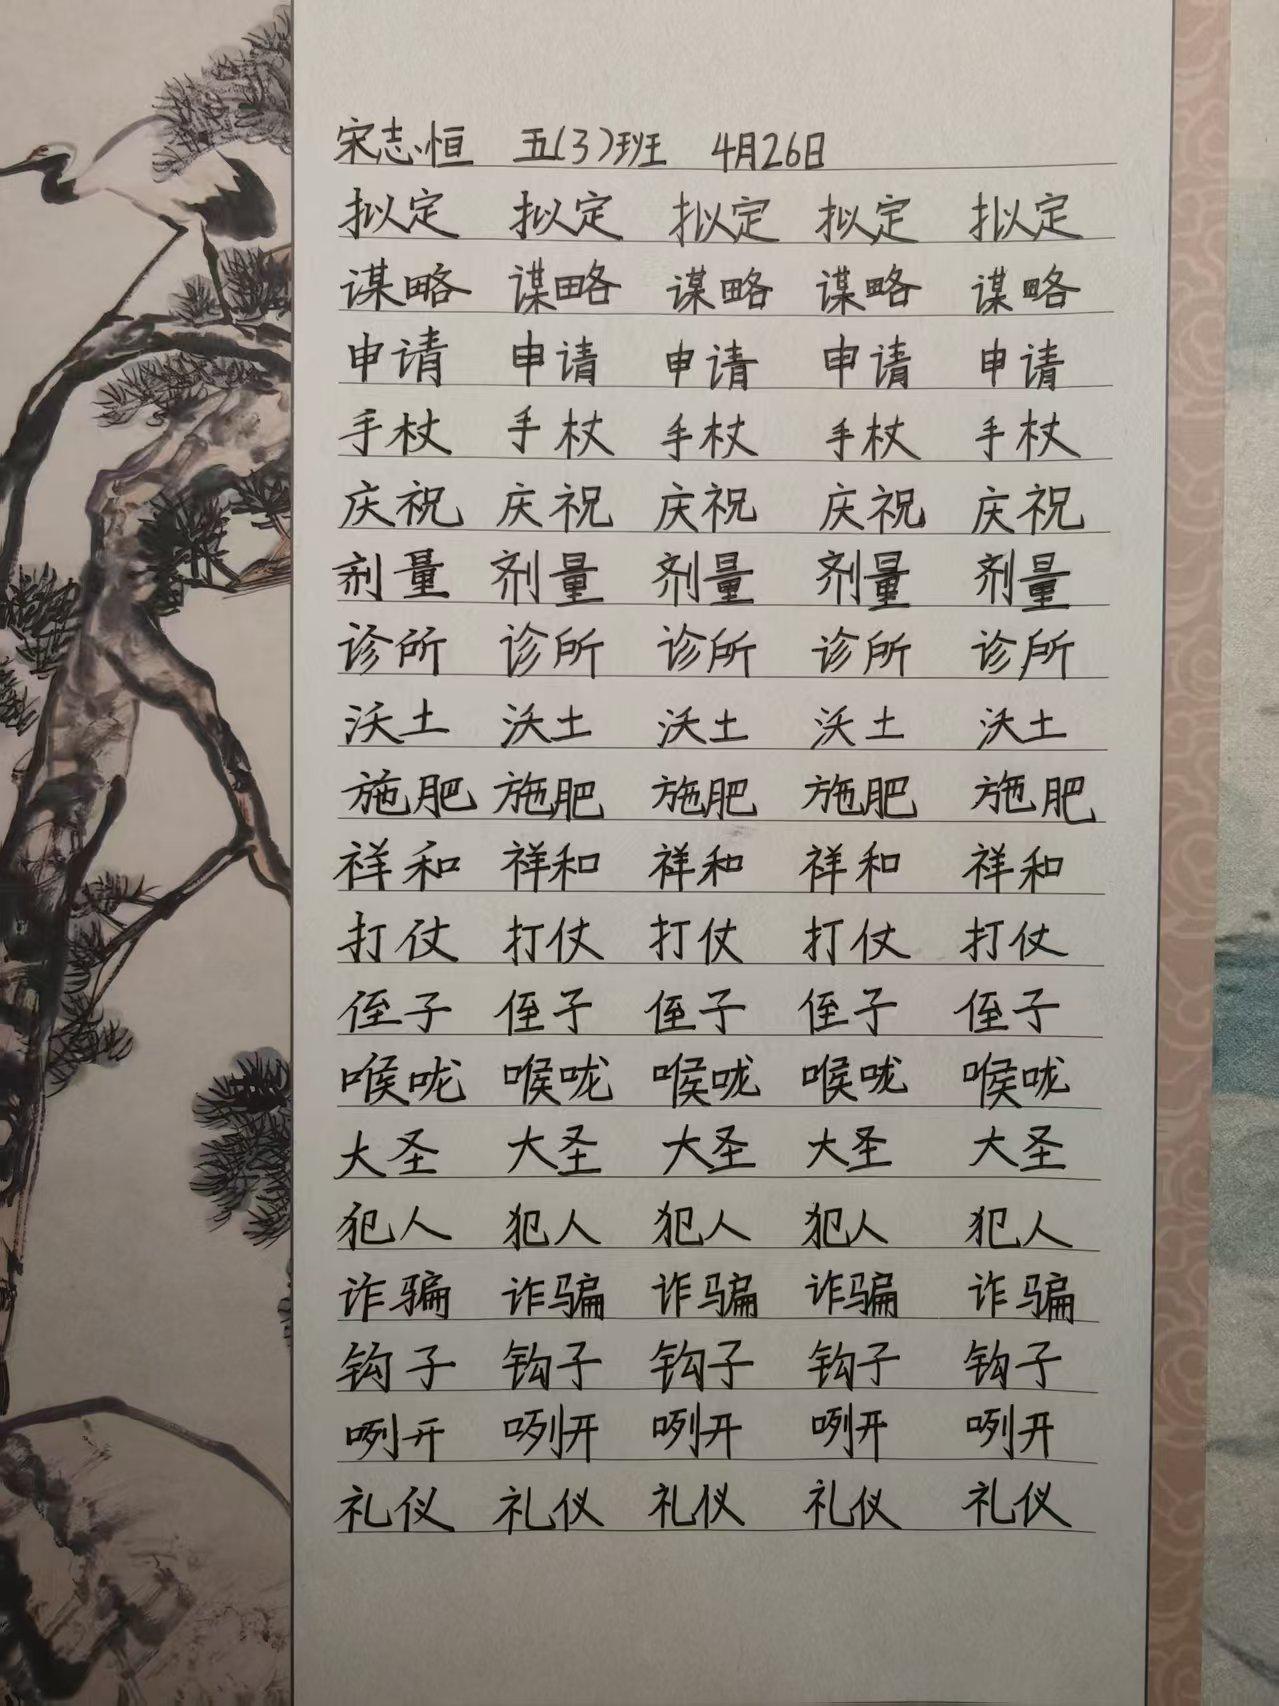 宋志恒 五(3)班 4月26日
拟定 拟定 拟定 拟定 拟定
谋略 谋略 谋略 谋略 谋略
申请 申请 申请 申请 申请
手杖 手杖 手杖 手杖 手杖
庆祝 庆祝 庆祝 庆祝 庆祝
剂量 剂量 剂量 剂量 剂量
诊所 诊所 诊所 诊所 诊所
沃土 沃土 沃土 沃土 沃土
施肥 施肥 施肥 施肥 施肥
祥和 祥和 祥和 祥和 祥和
打仗 打仗 打仗 打仗 打仗
侄子 侄子 侄子 侄子 侄子
喉咙 喉咙 喉咙 喉咙 喉咙
大圣 大圣 大圣 大圣 大圣
犯人 犯人 犯人 犯人 犯人
诈骗 诈骗 诈骗 诈骗 诈骗
钩子 钩子 钩子 钩子 钩子
咧开 咧开 咧开 咧开 咧开
礼仪 礼仪 礼仪 礼仪 礼仪